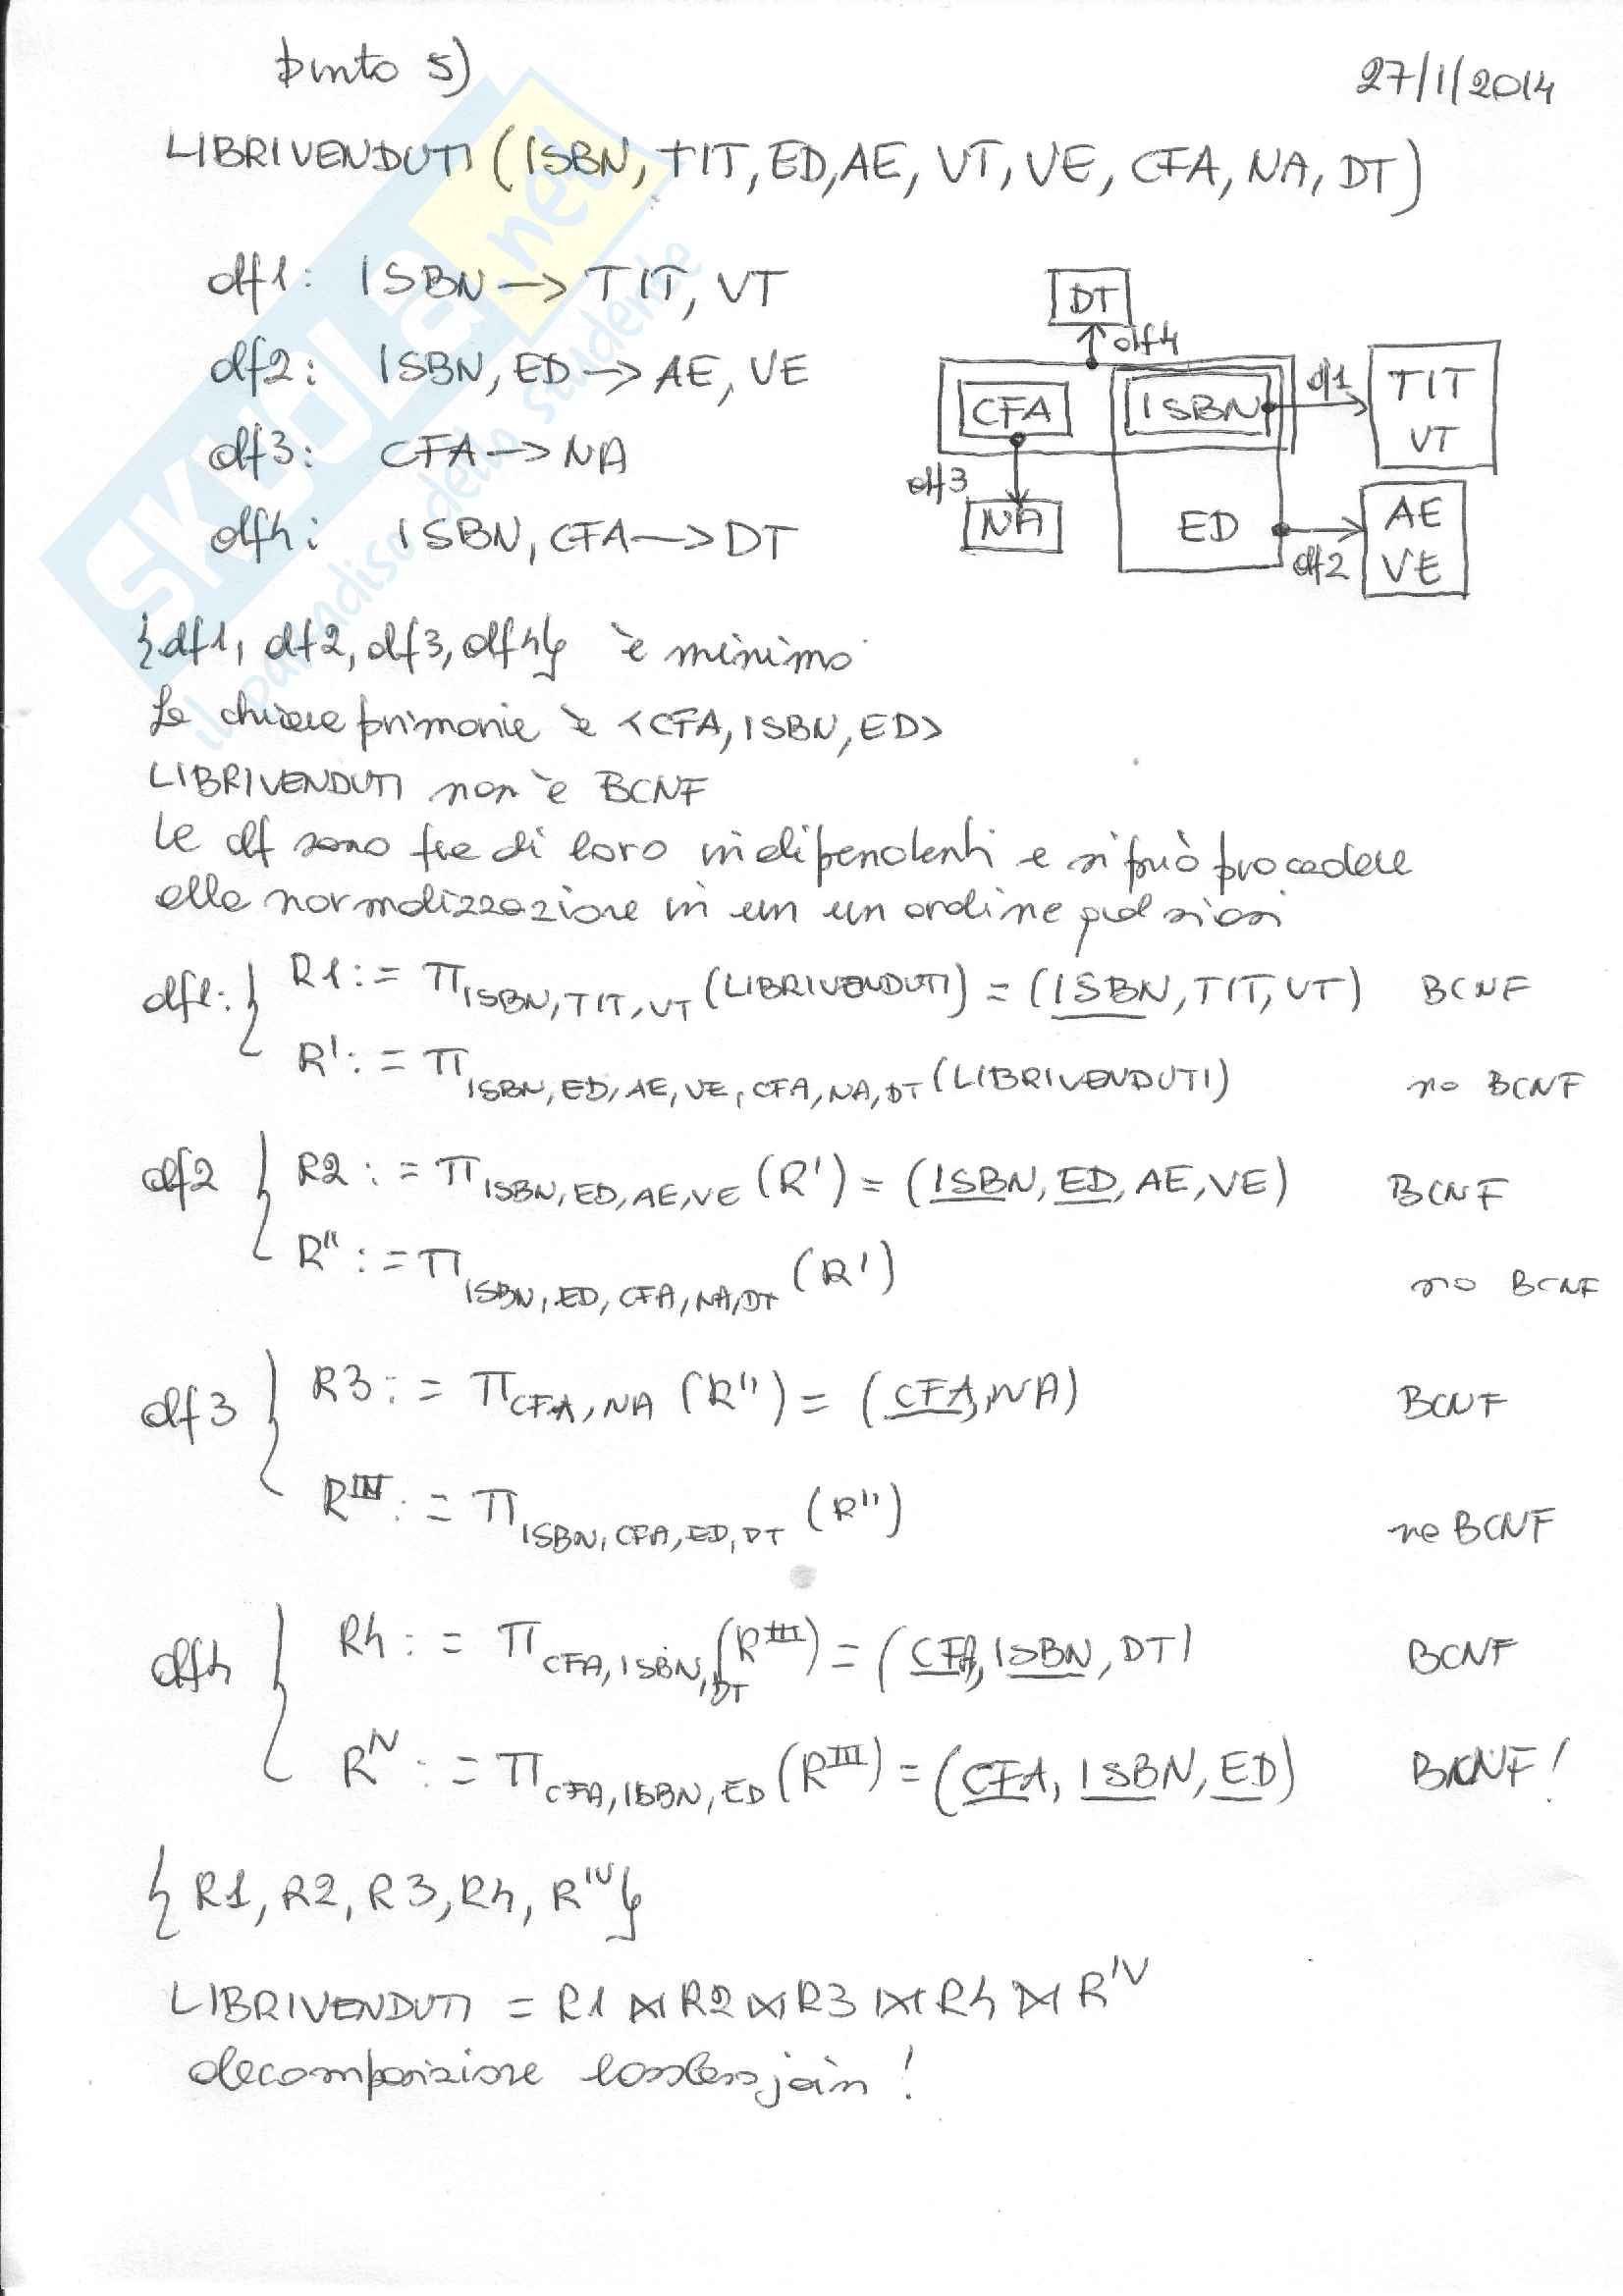 punto 5)
27/1/2014
LIBRIVENDUTI (ISBN, TIT, ED, AE, VT, VE, CFA, NA, DT)
df1: ISBN → TIT, VT
df2: ISBN, ED → AE, VE
df3: CFA → NA
df4: ISBN, CFA → DT
DT
df4
CFA
ISBN
df1
TIT
VT
df3
NA
ED
df2
AE
VE
{df1, df2, df3, df4} è minimo
La chiave primaria è <CFA, ISBN, ED>
LIBRIVENDUTI non è BCNF
Le df sono fra di loro indipendenti e si può procedere
alla normalizzazione in un un ordine qualsiasi
df1: { R1 := π ISBN, TIT, VT (LIBRIVENDUTI) = (ISBN, TIT, VT) BCNF
R' := π ISBN, ED, AE, VE, CFA, NA, DT (LIBRIVENDUTI) no BCNF
df2 { R2 := π ISBN, ED, AE, VE (R') = (ISBN, ED, AE, VE) BCNF
R'' := π ISBN, ED, CFA, NA, DT (R') no BCNF
df3 { R3 := π CFA, NA (R'') = (CFA, NA) BCNF
R''' := π ISBN, CFA, ED, DT (R'') no BCNF
df4 { R4 := π CFA, ISBN, DT (R III) = (CFA, ISBN, DT) BCNF
R IV := π CFA, ISBN, ED (R III) = (CFA, ISBN, ED) BCNF!
{R1, R2, R3, R4, R IV}
LIBRIVENDUTI = R1 ⋈ R2 ⋈ R3 ⋈ R4 ⋈ R IV
decomposizione lossless join!
SKUOLA.net
il paradiso dello studente